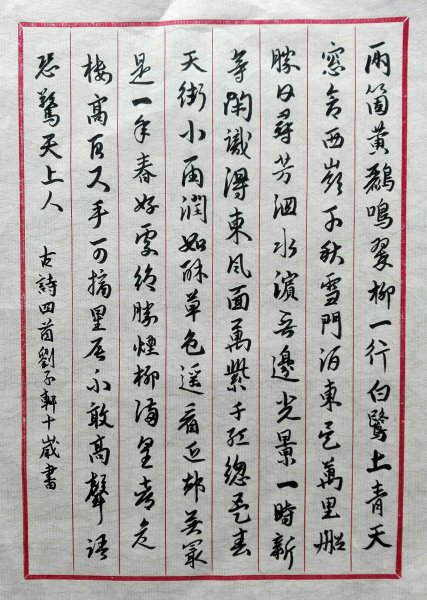 兩箇黃鸝鳴翠柳一行白鷺上青天
窓含西嶺千秋雪門泊東吳萬里船
勝日尋芳泗水濱无邊光景一時新
等閑識得東風面萬紫千紅總是春
天街小雨潤如酥草色遥看近却無最
是一年春好處絕勝煙柳滿皇都危
樓高百尺手可摘星辰不敢高聲語
恐驚天上人 古詩四首劉子軒十歲書